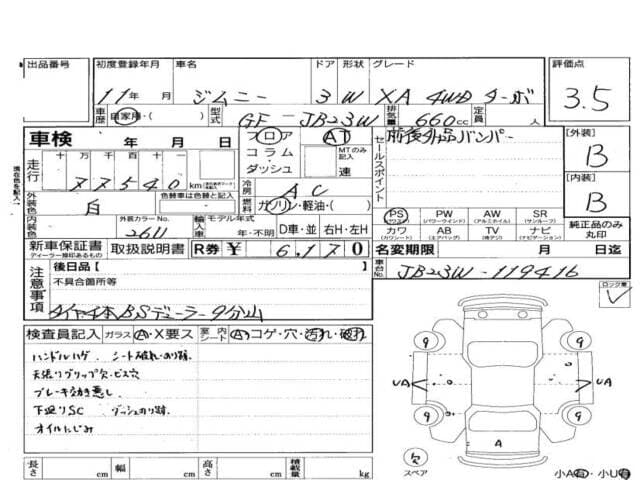 出品番号 初度登録年月 車名 ドア 形状 グレード 評価点
11年 月 ジムニー 3 W XA 4WD ターボ 3.5
車歴 自家用・( ) 型式 GF-JB23W 排気量 660cc 定員 人
車検 年 月 日 フロア AT 前後外品バンパー [外装]
コラム MTのみ記入 セールスポイント B
走行 十 万 千 百 十 一 ダッシュ 速
77540 km 冷房 AC [内装]
外装色 白 色替車は色と記入 燃料 ガソリン・軽油・( ) B
PS PW AW SR
(パワステ) (パワーウインド) (アルミホイル) (サンルーフ)
内装色 外装カラーNo. 2611 輸入車 モデル年式 年・不明 D車・並 右H・左H カワ AB TV ナビ 純正品のみ丸印
(カワシート) (エアバッグ) (地デジ) (ナビゲーション)
新車保証書 取扱説明書 R券 ¥ 6,170 名変期限 月 日迄
ディーラー捺印あるもの
車台No. JB23W-119416
注意事項 後日品[ ] ロック車
不具合箇所等
タイヤ4本BSデーラー9分山
検査員記入 ガラス A・X要ス 室内 シート A コゲ・穴・汚れ・破れ
ハンドルハゲ. シート破れ・のり跡.
天張りグリップ欠・ビス穴
ブレーキ効き悪し
下廻りSC ダッシュのり跡.
オイルにじみ
9 9
UA UA
9 9
A
欠
スペア
長さ cm 幅 cm 高さ cm 積載量 kg 小A有・小U有